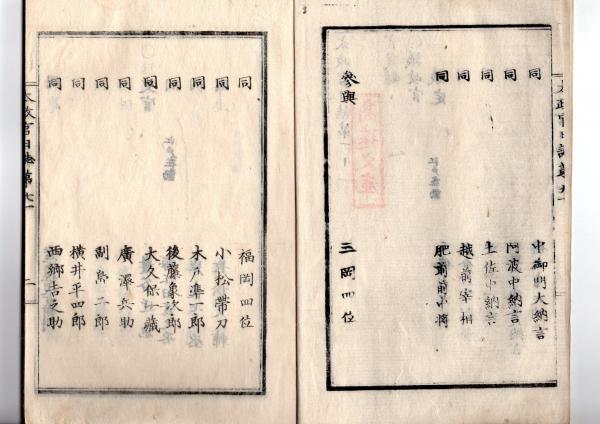 同 中御門大納言
同 阿波中納言
同 土佐中納言
同 越前宰相
同 肥前前中将
参與 三岡四位
同 福岡四位
同 小松帯刀
同 木戸準一郎
同 後藤象次郎
同 大久保一藏
同 廣澤兵助
同 副島二郎
同 横井平四郎
同 西郷吉之助
太政官日誌第
二